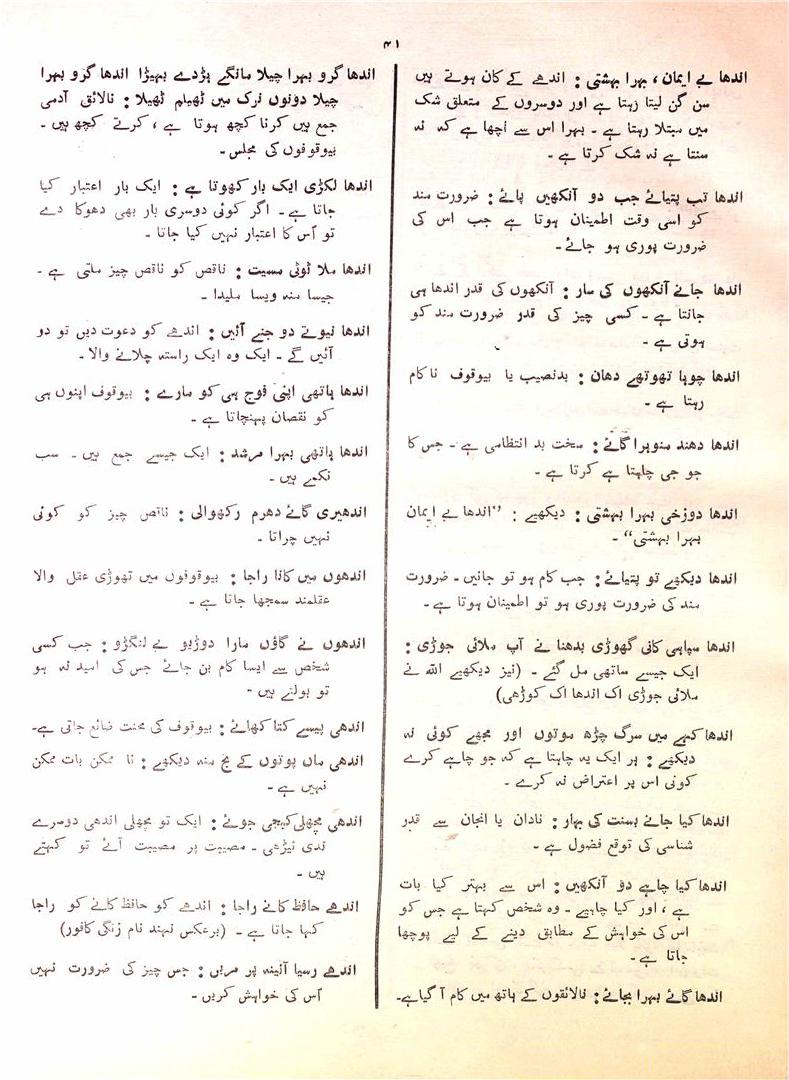 ۴۱
اندھا بے ایمان ، بہرا بہشتی : اندھے کے کان ہوتے ہیں
سن گن لیتا رہتا ہے اور دوسروں کے متعلق شک
میں مبتلا رہتا ہے ۔ بہرا اس سے اچھا ہے کہ نہ
سنتا ہے نہ شک کرتا ہے ۔
اندھا تب پتیائے جب دو آنکھیں پائے : ضرورت مند
کو اسی وقت اطمینان ہوتا ہے جب اس کی
ضرورت پوری ہو جائے ۔
اندھا جانے آنکھوں کی سار : آنکھوں کی قدر اندھا ہی
جانتا ہے ۔ کسی چیز کی قدر ضرورت مند کو
ہوتی ہے ۔
اندھا چوہا تھوتھے دھان : بدنصیب یا بیوقوف ناکام
رہتا ہے ۔
اندھا دھند منوہرا گائے : سخت بد انتظامی ہے ۔ جس کا
جو جی چاہتا ہے کرتا ہے ۔
اندھا دوزخی بہرا بہشتی : دیکھیے : ”اندھا بے ایمان
بہرا بہشتی“ ۔
اندھا دیکھے تو پتیائے : جب کام ہو تو جانیں ۔ ضرورت
مند کی ضرورت پوری ہو تو اطمینان ہوتا ہے ۔
اندھا سپاہی کانی گھوڑی بدھنا نے آپ ملائی جوڑی :
ایک جیسے ساتھی مل گئے ۔ (نیز دیکھیے اللہ نے
ملائی جوڑی اک اندھا اک کوڑھی)
اندھا کہے میں سرگ چڑھ موتوں اور مجھے کوئی نہ
دیکھے : ہر ایک یہ چاہتا ہے کہ جو چاہے کرے
کوئی اس پر اعتراض نہ کرے ۔
اندھا کیا جانے بسنت کی بہار : نادان یا انجان سے قدر
شناسی کی توقع فضول ہے ۔
اندھا کیا چاہے دو آنکھیں : اس سے بہتر کیا بات
ہے ، اور کیا چاہیے ۔ وہ شخص کہتا ہے جس کو
اس کی خواہش کے مطابق دینے کے لیے پوچھا
جاتا ہے ۔
اندھا گائے بہرا بجائے : نالائقوں کے ہاتھ میں کام آ گیا ہے۔
اندھا گرو بہرا چیلا مانگے ہڑدے بہیڑا اندھا گرو بہرا
چیلا دونوں نرک میں ٹھیلم ٹھیلا : نالائق آدمی
جمع ہیں کرنا کچھ ہوتا ہے ، کرتے کچھ ہیں ۔
بیوقوفوں کی مجلس ۔
اندھا لکڑی ایک بار کھوتا ہے : ایک بار اعتبار کیا
جاتا ہے ۔ اگر کوئی دوسری بار بھی دھوکا دے
تو اُس کا اعتبار نہیں کیا جاتا ۔
اندھا ملا ٹوٹی مسیت : ناقص کو ناقص چیز ملتی ہے ۔
جیسا منہ ویسا ملیدا ۔
اندھا نیوتے دو جنے آئیں : اندھے کو دعوت دیں تو دو
آئیں گے ۔ ایک وہ ایک راستہ چلانے والا ۔
اندھا ہاتھی اپنی فوج ہی کو مارے : بیوقوف اپنوں ہی
کو نقصان پہنچاتا ہے ۔
اندھا ہاتھی بہرا مرشد : ایک جیسے جمع ہیں ۔ سب
نکمے ہیں ۔
اندھیری گائے دھرم رکھوالی : ناقص چیز کو کوئی
نہیں چراتا ۔
اندھوں میں کانا راجا : بیوقوفوں میں تھوڑی عقل والا
عقلمند سمجھا جاتا ہے ۔
اندھوں نے گاؤں مارا دوڑیو بے لنگڑو : جب کسی
شخص سے ایسا کام بن جائے جس کی امید نہ ہو
تو بولتے ہیں ۔
اندھی پیسے کتا کھائے : بیوقوف کی محنت ضائع جاتی ہے۔
اندھی ماں پوتوں کے منہ دیکھے : نا ممکن بات ممکن
نہیں ہے ۔
اندھی مچھلی کیچی جوئے : ایک تو مچھلی اندھی دوسرے
ندی ٹیڑھی ۔ مصیبت پر مصیبت آئے تو کہتے
ہیں ۔
اندھے حافظ کانے راجا : اندھے کو حافظ کانے کو راجا
کہا جاتا ہے ۔ (برعکس نہند نام زنگی کافور)
اندھے رسیا آئینہ پر مریں : جس چیز کی ضرورت نہیں
اُس کی خواہش کریں ۔